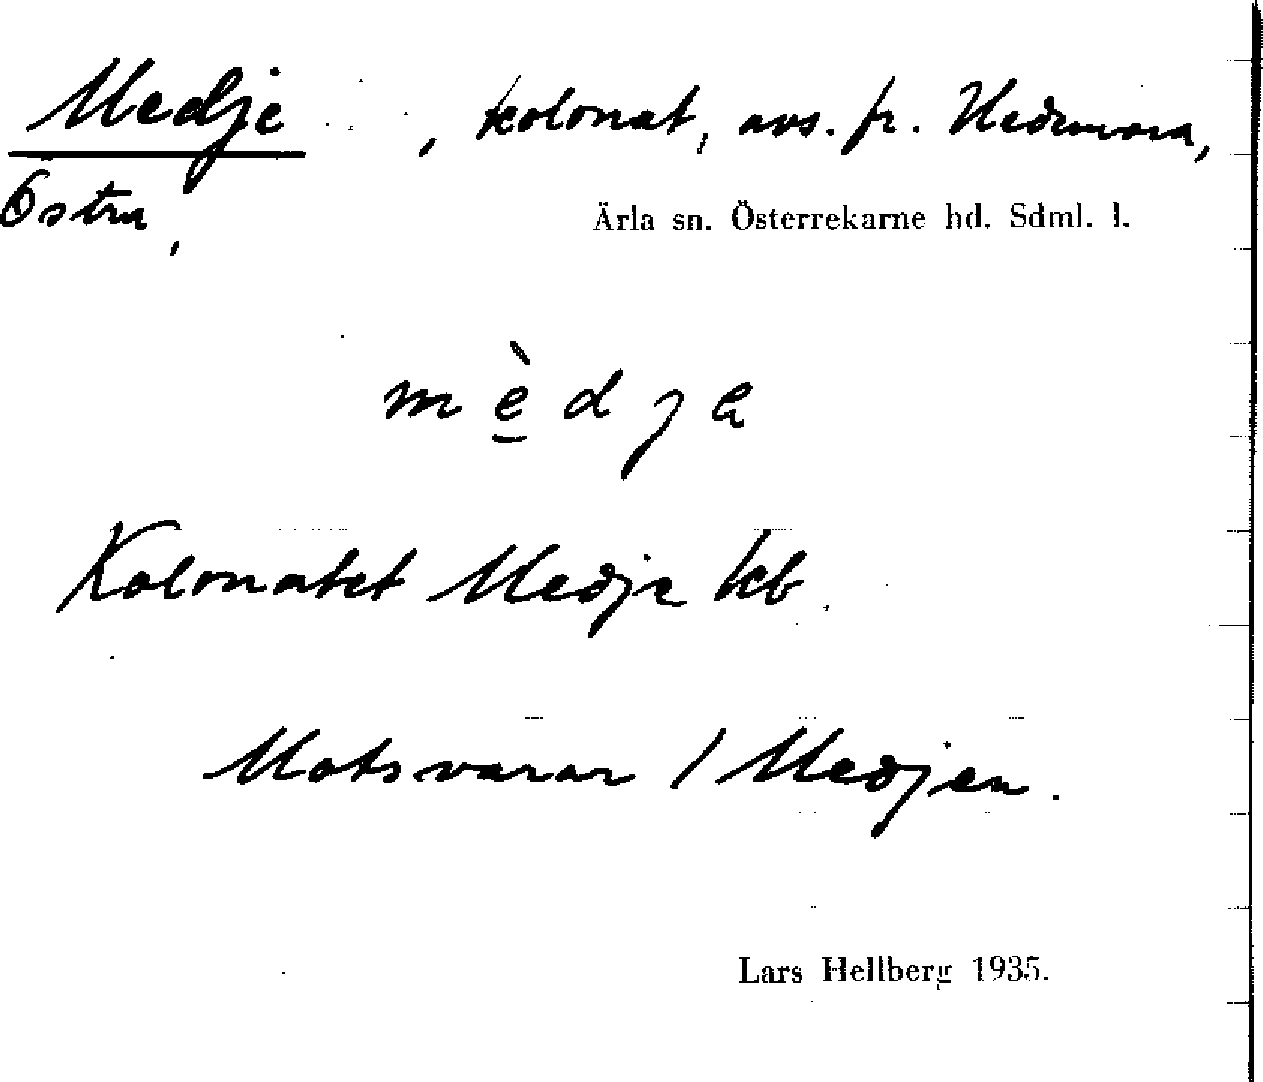 Medje, kolonat, avs. fr. Hedemora,
Östra,
Ärla sn. Österrekarne hd. Sdml. l.
mèdja
Kolonatet Medje kb.
Motsvarar / Medjen.
Lars Hellberg 1935.